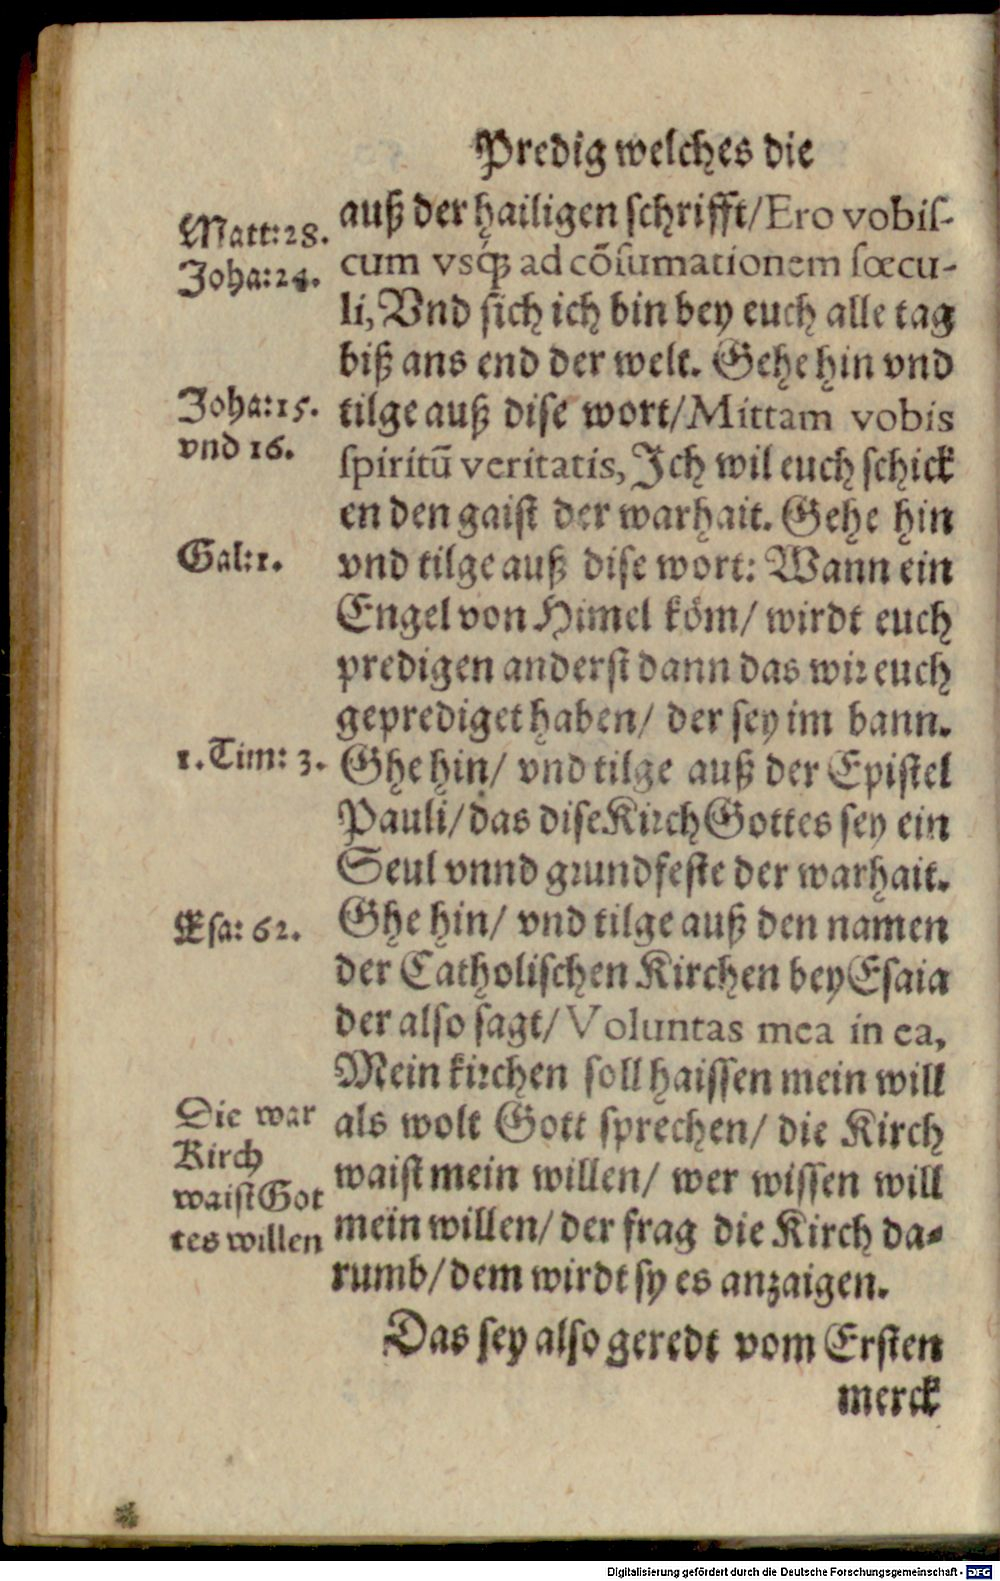 Predig welches die
Matt:28.
Joha:24.
auß der hailigen schrifft/Ero vobiſ-
cum vsq; ad cõſumationem ſœcu-
li, Vnd sich ich bin bey euch alle tag
biß ans end der welt. Gehe hin vnd
Joha:15.
vnd 16.
tilge auß dise wort/Mittam vobis
spiritũ veritatis, Ich wil euch schick
en den gaist der warhait. Gehe hin
Gal:1.
vnd tilge auß dise wort: Wann ein
Engel von Himel köm/ wirdt euch
predigen anderst dann das wir euch
geprediget haben/ der sey im bann.
1. Tim: 3.
Ghe hin/ vnd tilge auß der Epistel
Pauli/das dise Kirch Gottes sey ein
Seul vnnd grundfeste der warhait.
Esa: 62.
Ghe hin/ vnd tilge auß den namen
der Catholischen Kirchen bey Esaia
der also sagt/ Voluntas mea in ea,
Mein kirchen soll haissen mein will
Die war
Kirch
waist Got
tes willen
als wolt Gott sprechen/ die Kirch
waist mein willen/ wer wissen will
mein willen/ der frag die Kirch da-
rumb/dem wirdt sy es anzaigen.
Das sey also geredt vom Ersten
merck
Digitalisierung gefördert durch die Deutsche Forschungsgemeinschaft - DFG